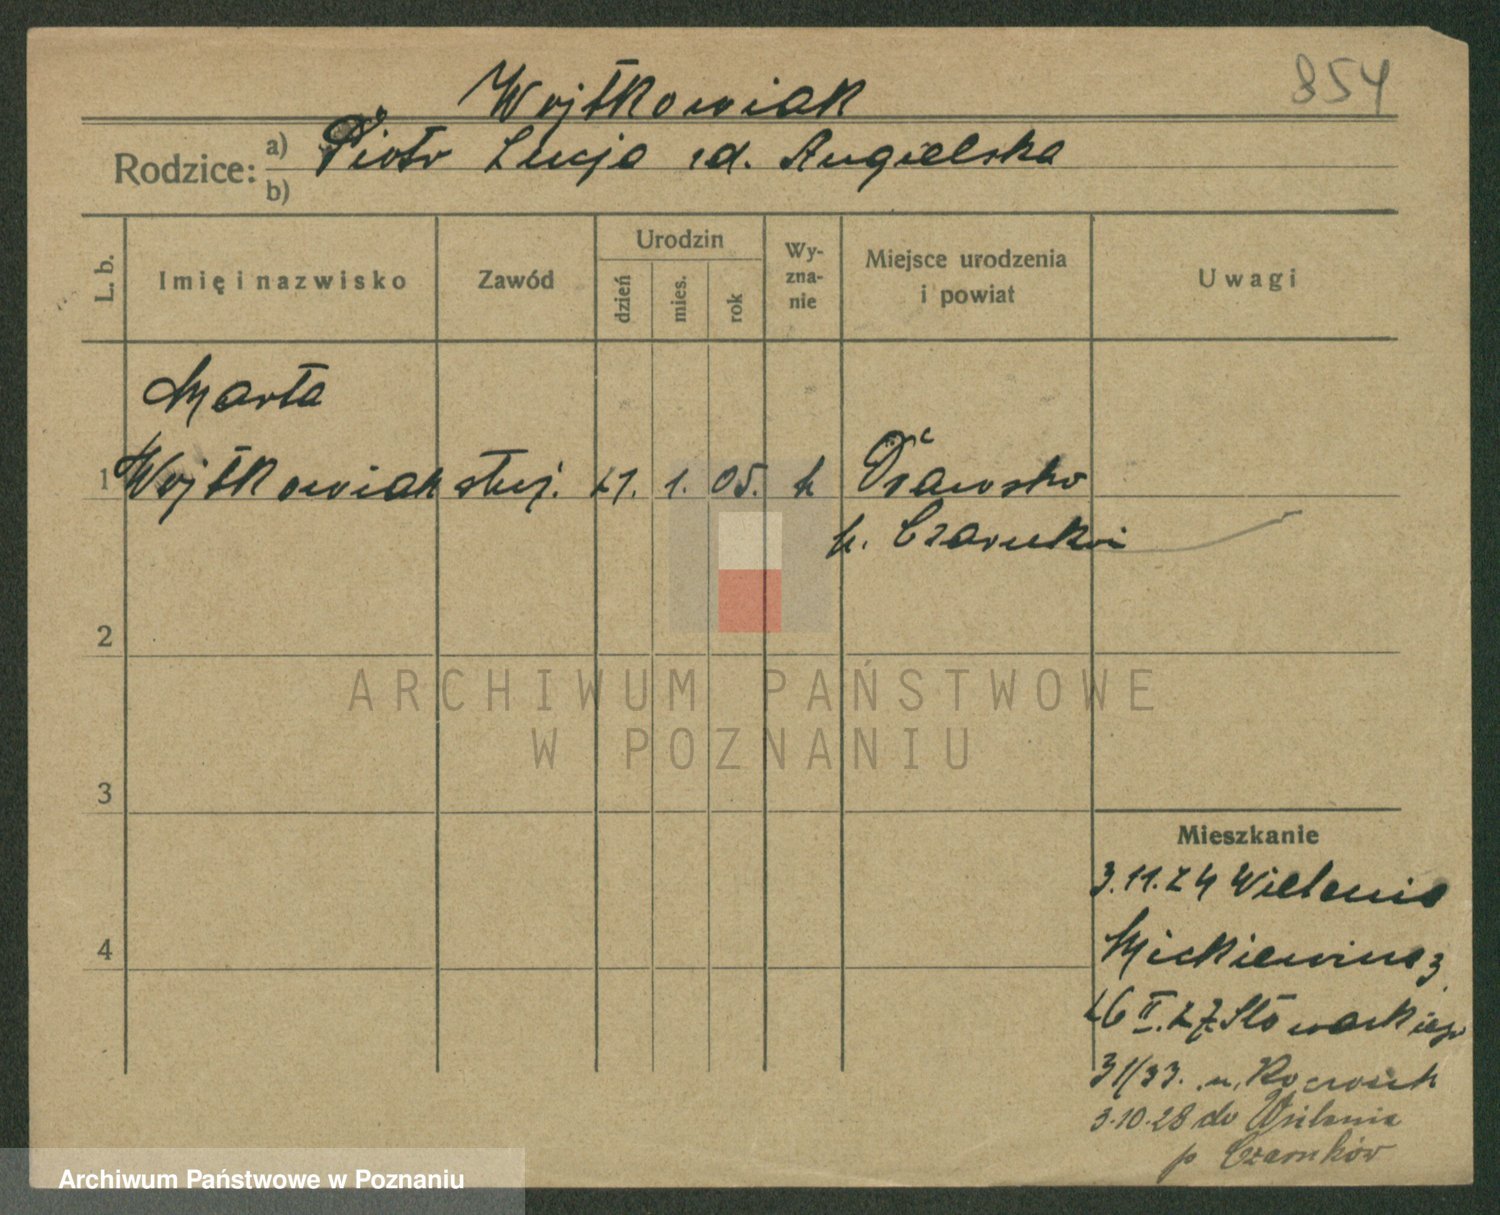 854
Wojtkowiak
Rodzice: a) Piotr Łucja zd. Angielska
b)
L. b. Imię i nazwisko Zawód Urodzin dzień mies. rok Wy-zna-nie Miejsce urodzenia i powiat Uwagi
Marta
1 Wojtkowiak służ. 27. 1. 05. k
p. Czarnków
2
ARCHIWUM PAŃSTWOWE
W POZNANIU
3
Mieszkanie
3.11.24 Wielenia
Mickiewicza
26 II. 27. Słowackiego
31/33. u.
3.10.28 do Wielenia
p Czarnków
4
Archiwum Państwowe w Poznaniu